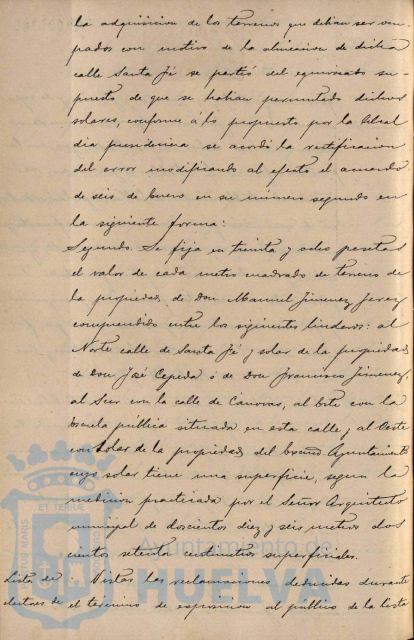 la adquisicion de los terrenos que debian ser ocu-
pados con motivo de la alineacion de dicha
calle Santa Fé se partió del equivocado su-
puesto de que se habian permutado dichos
solares, conforme á lo propuesto por la Alcal
dia presidencia se acordó la rectificacion
del error modificando al efecto el acuerdo
de seis de Enero en su número segundo en
la siguiente forma:
Segundo. Se fija en treinta y ocho pesetas
el valor de cada metro cuadrado de terreno de
la propiedad de Don Manuel Jimenez Jerez
comprendido entre los siguientes linderos: al
Norte calle de Santa Fé y solar de la propiedad
de Don José Cepeda ó de Don Francisco Jimenez,
al Sur con la calle de Canovas, al Este con la
Escuela pública situada en esta calle y al Oeste
con Solar de la propiedad del Excmo Ayuntamiento
cuyo solar tiene una superficie, segun la
medicion practicada por el Señor Arquitecto
municipal de doscientos diez y seis metros dos
cientos setenta centimetros superficiales.
Lista de Vistas las reclamaciones deducidas durante
electores de el término de exposicion al público de la lista
ET TERRÆ
Ayuntamiento de
HUELVA